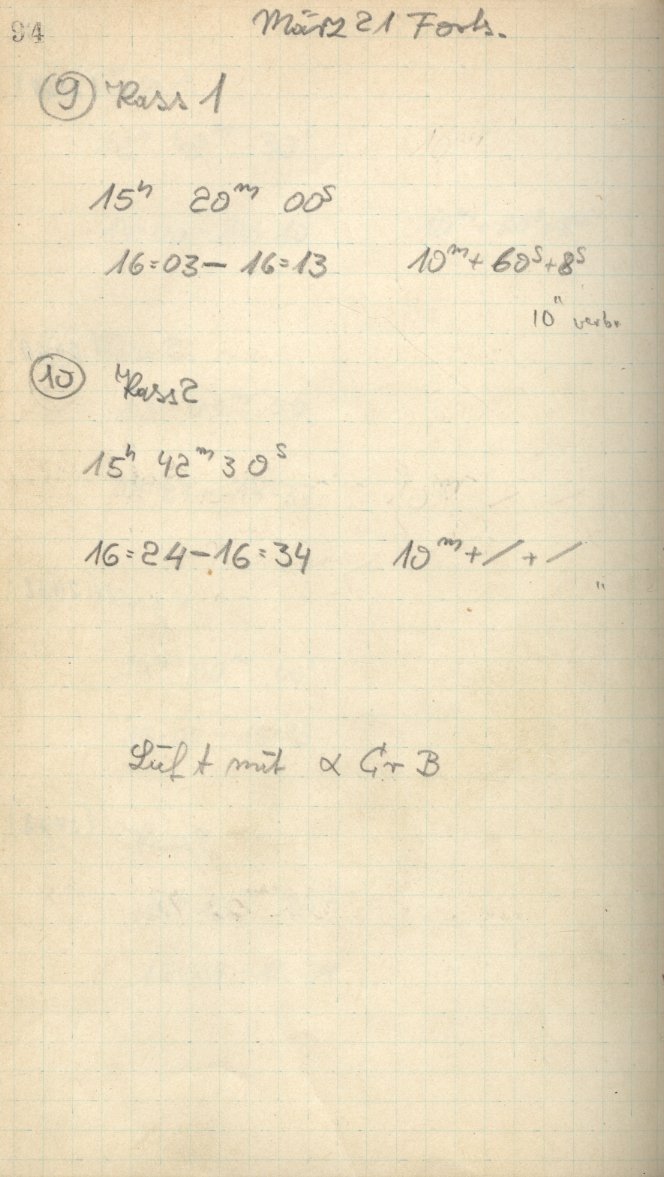 94
März 21 Forts.
9 Kass 1
15ʰ 20ᵐ 00ˢ
16:03 – 16:13 10ᵐ + 60ˢ + 8ˢ
10" verbr
10 Kass 2
15ʰ 42ᵐ 30ˢ
16:24 – 16:34 10ᵐ + / + /
"
Luft mit α Cr B